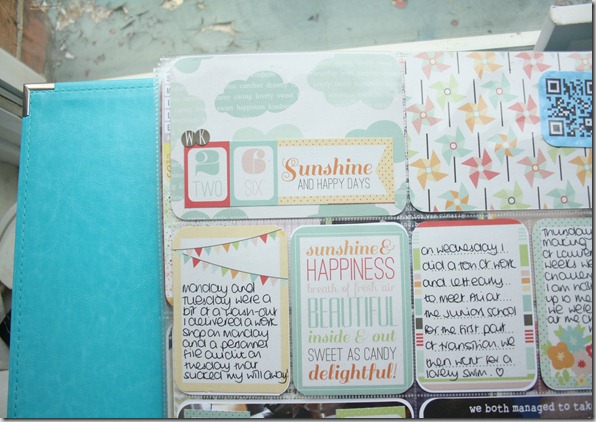 WK
2 6
TWO SIX
Sunshine
AND HAPPY DAYS
monday and
Tuesday were a
bit of a
I delivered a work
shop on monday
and a personnel
file audit on
Tuesday that
sucked my will away!
sunshine &
HAPPINESS
breath of fresh air
BEAUTIFUL
inside & out
SWEET AS CANDY
delightful!
on wednesday I
did a ton of work
and left early
to meet Ali at
the junior school
for the first part
of transition. we
then went for a
lovely swim. ♡
Thursday
making
weeks
I am
up to
we were
at me
we both managed to